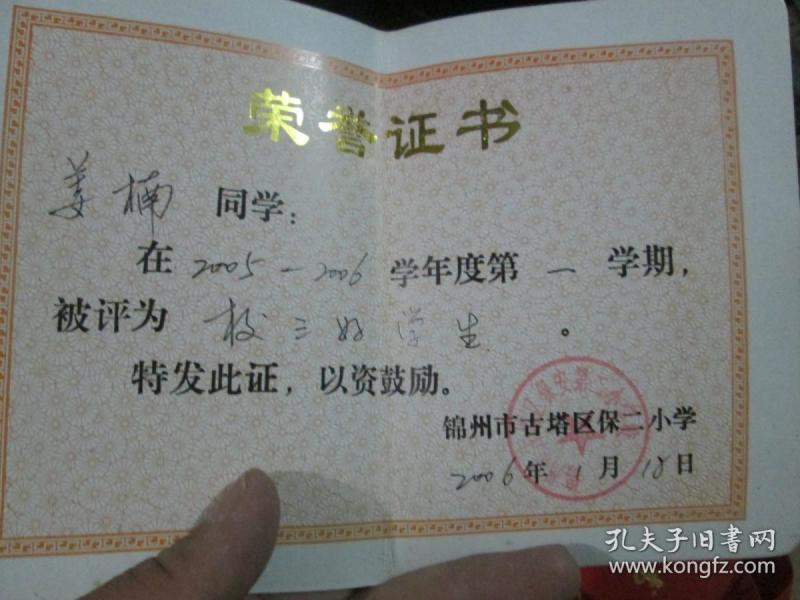 荣誉证书
姜楠 同学：
在 2005—2006 学年度第 一 学期，
被评为 校三好学生 。
特发此证，以资鼓励。
锦州市古塔区保二小学
2006年 1月 18日
孔夫子旧书网
www.kongfz.com